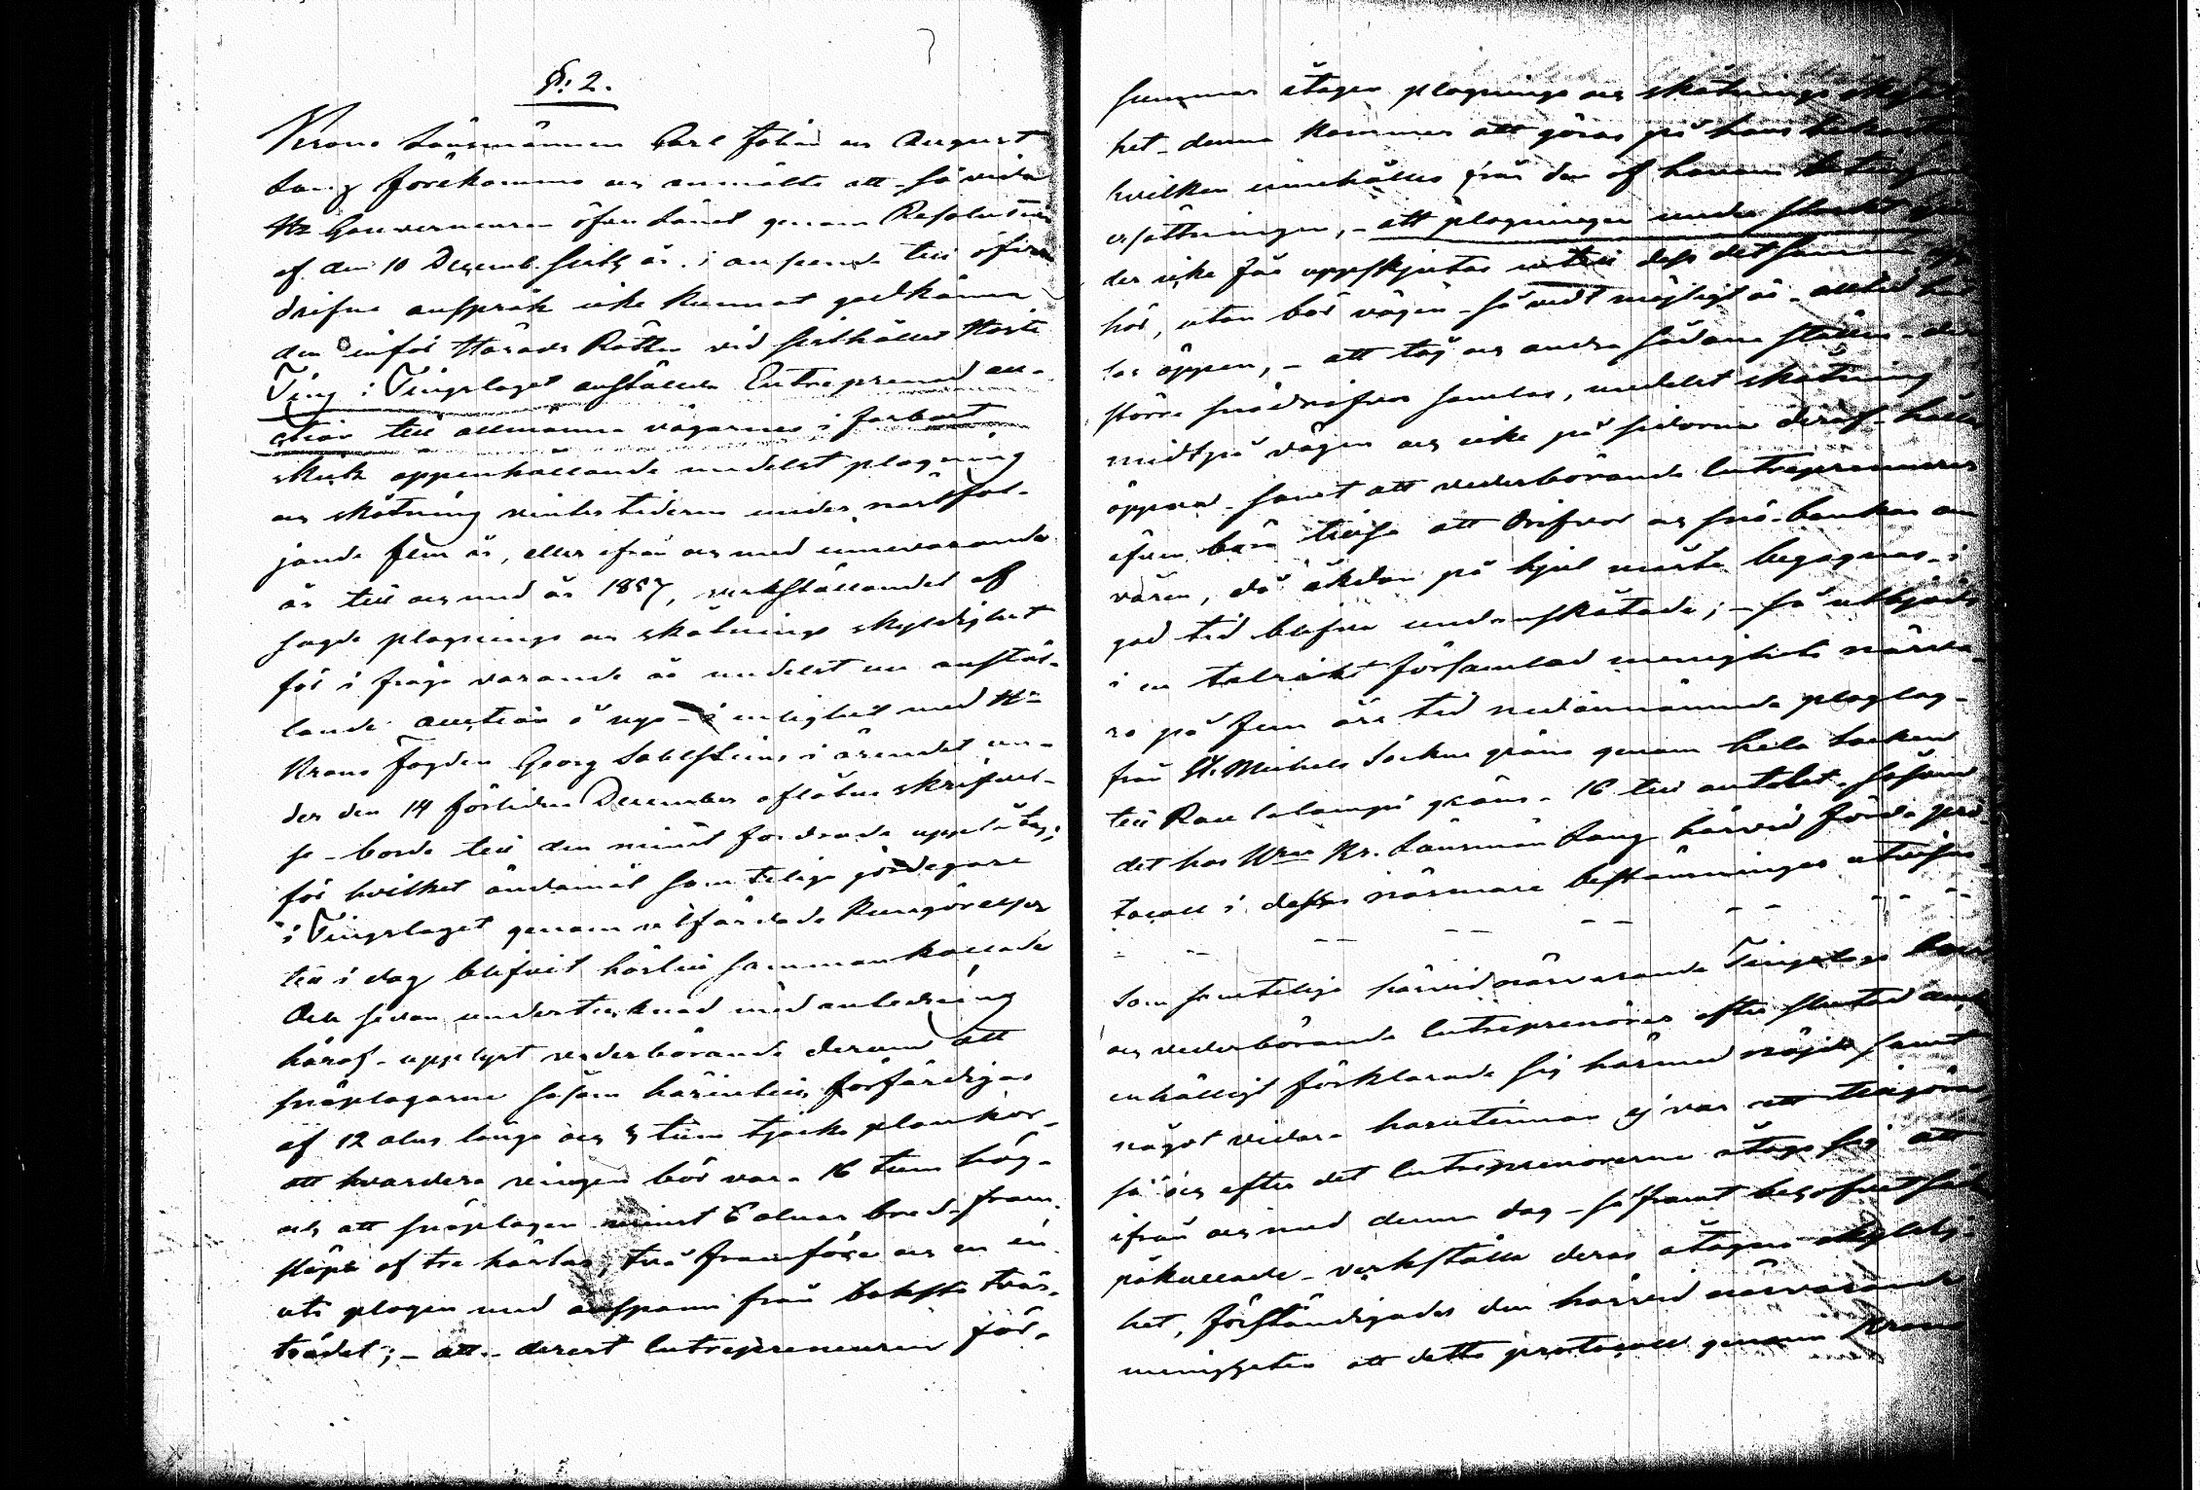 §. 2.
Krono Länsmännen Carl Johan och August
Lang förekommo och anmälte att såvida
Hr Gouverneuren öfver Länet genom Resolution
af den 10 Decemb. sistl. år i anseende till öfver-
drifne anspråk icke kunnat godkänna
den inför Härads Rätten vid sisthållet Höste
Ting i Tingslaget anstälde Entreprenad au-
ction till allmänna vägarnes i farbart
skick öppenhållande medelst plogning
och skötning vintertiderne under nästföl-
jande fem år, eller ifrån och med innevarande
år till och med år 1857, verkställandet af
sagde plognings och skötnings skyldighet
för i fråga varande år medelst en anstäl-
lande auction å nyo i enlighet med Hr
Krono Fogden Georg Sahlsteins i ärendet un-
der den 14 förlidne December aflåtne skrifvel-
se borde till den minst fordrande uppl
för hvilket ändamål samtelige jordegare
i Tingslaget genom utfärdade Kungörelser
till i dag blifvit härtill sammankallade
Och sedan undertecknad med anledning
häraf upplyst vederbörande derom att
snöplogarne såsom härintill förfärdigas
af 12 alns långa och 3 tum tjocka plankor
att hvardera vingen bör vara 16 tum hög
och att snöplogen minst 6 alnar bred fram
släpas af tre hästar, två framföre och en in-
uti plogen med anspann från baksta trä-
trädet; – att derest Entrepreneuren för-
summar åtagen plognings och skötnings skyldig
het denna kommer att göras på hans bekostnad
hvilken innehålles från den af honom betingade
ersättningen, – att plogningen under starkt
der icke får uppskjutas intill dess detsamma upp
hör, utan bör vägen så vidt möjligt är alltid hål
las öppen, – att tåg och andra sådane ställen der
större snödrifvor samlas, medelst skötning
midtpå vägen och icke på sidorne deraf hålla
öppna samt att vederbörande Entrepreneurer
äfven böra tillse att drifvor och snö-bankar om
våren, då åkdon på hjul måste begagnas i
god tid blifva undanskötade; – så utbjöds
i en talrikt församlad menighets närva-
ro på fem års tid nedannämnde ploglag
från St. Michels Sockne gräns genom hela Socken
till Rautalampi gräns 16 till antalet såsom
det hos Hrne Kr. Länsmän Lang härvid förda pro
tocoll i dessas närmare bestämningar utvisar
Som samtelige härvid närvarande Tingslags Boer
och vederbörande Entreprenörer efter slutad auction
enhälligt förklarade sig härmed nöjde samt
något vidare harutinnan ej var att tillgöra,
så och efter det Entreprenörerne åtogo sig att
ifrån och med denna dag såframt behofvet så
påkallade verkställa deras åtagne skyldig-
het, förständigades den härvid närvarande
menigheten att detta protocoll genom Krono